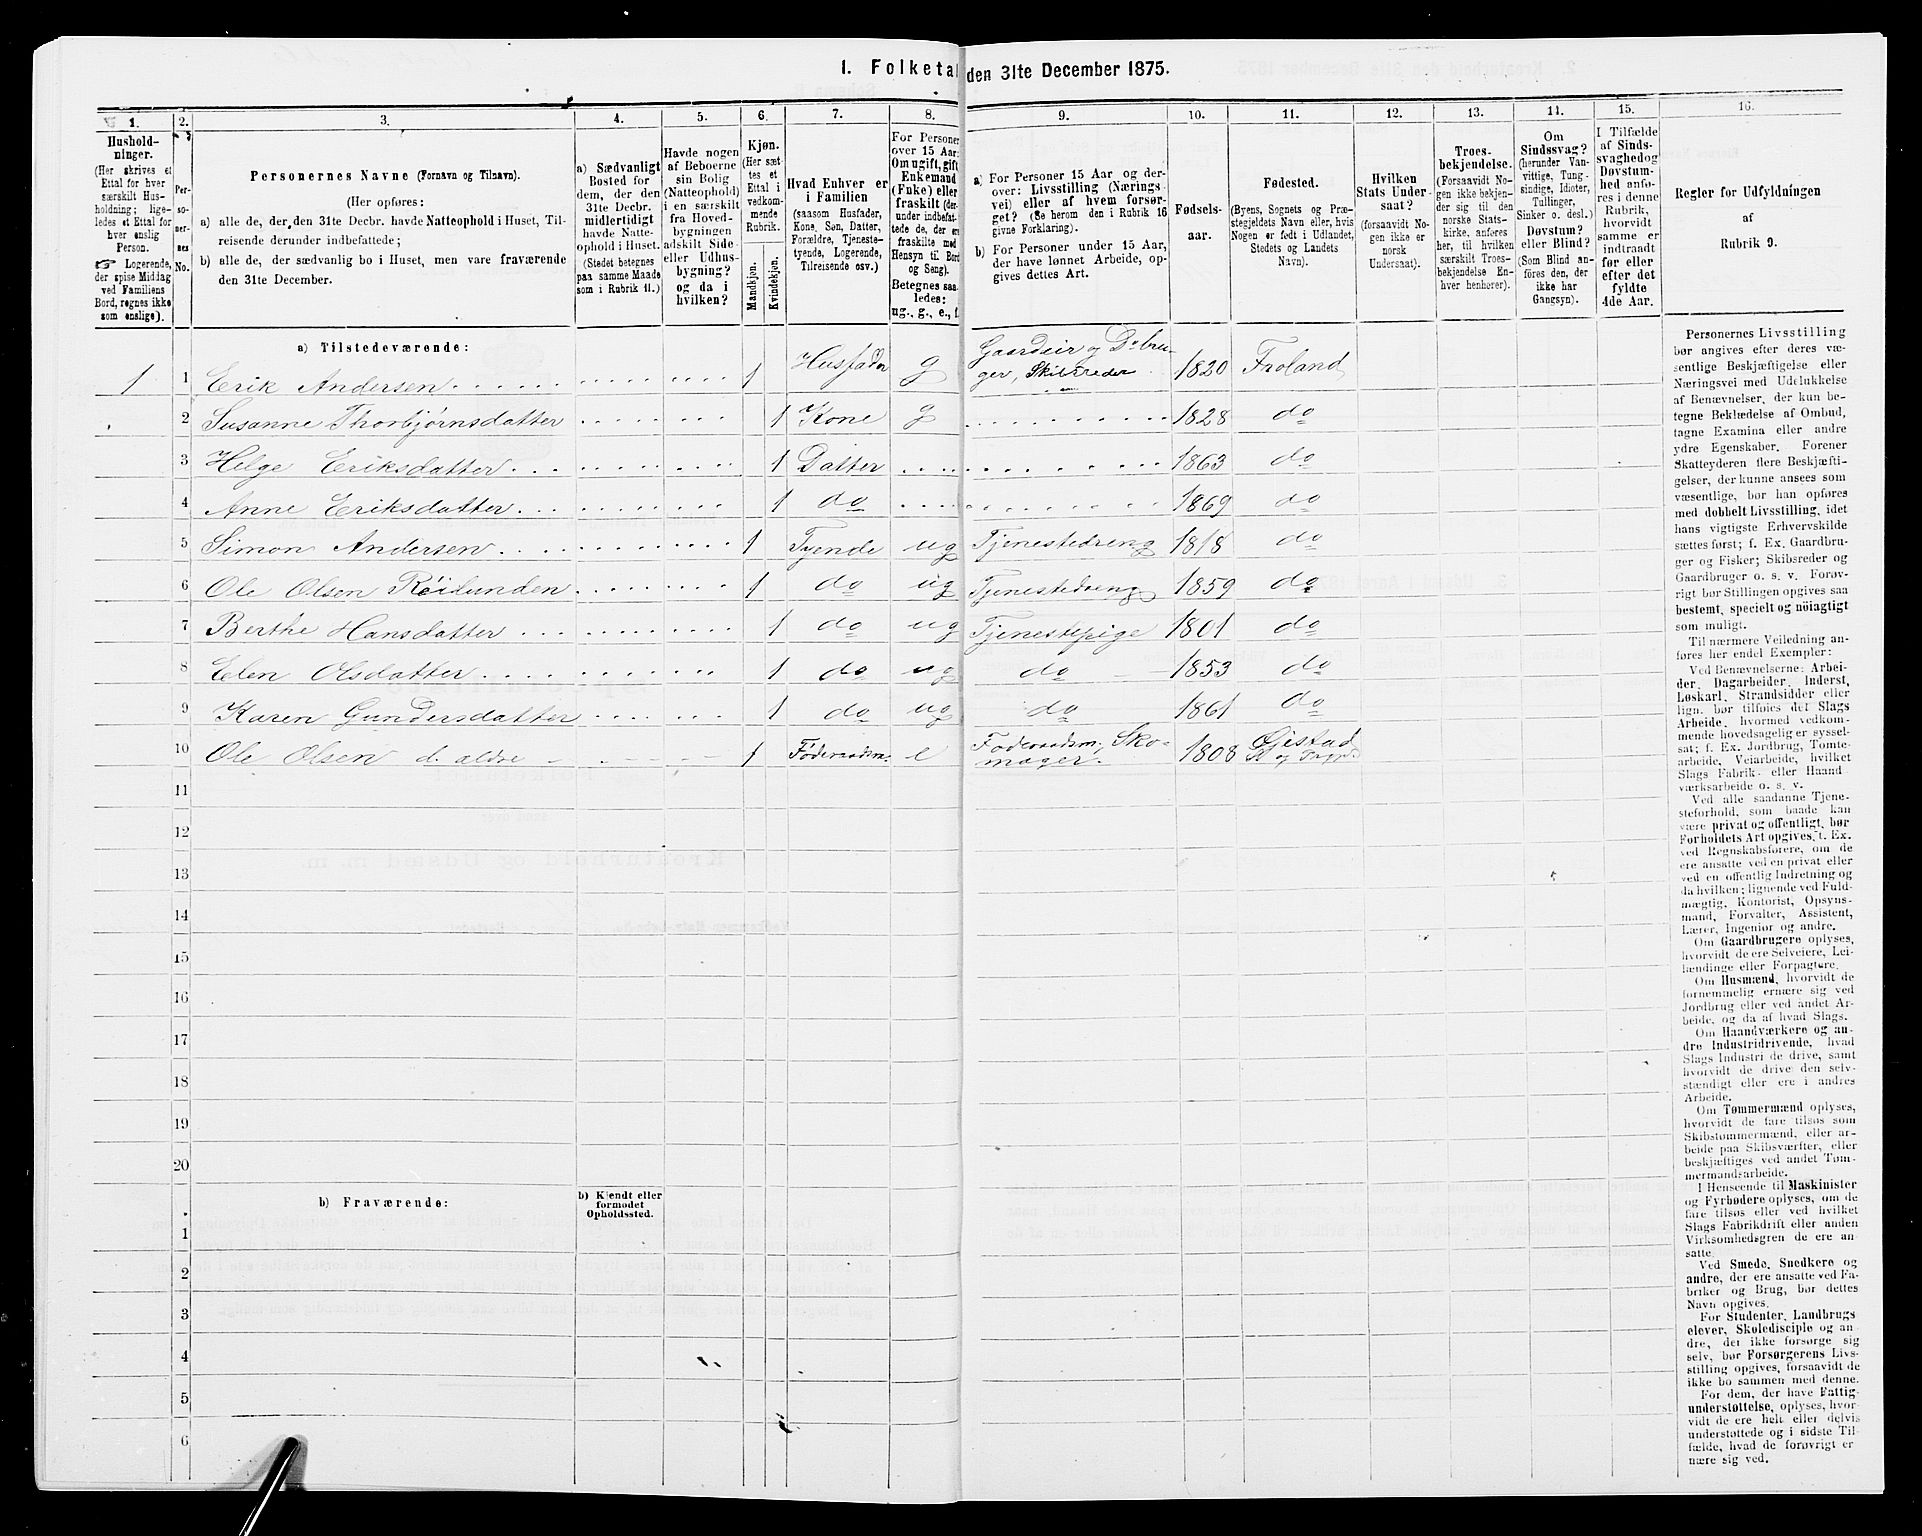 1. Folketal den 31te December 1875.
1. 2. 3. 4. 5. 6. 7. 8. 9. 10. 11. 12. 13. 14. 15. 16.
Hushold-
ninger.
(Her skrives et
Ettal for hver
særskilt Hus-
holdning; lige-
ledes et Ettal for
hver enslig
Person.
☞ Logerende,
der spise Middag
ved Familiens
Bord, regnes ikke
som enslige).
Per-
so-
ner-
nes
No.
Personernes Navne (Fornavn og Tilnavn).
(Her opføres:
a) alle de, der den 31te Decbr. havde Natteophold i Huset, Til-
reisende derunder indbefattede;
b) alle de, der sædvanlig bo i Huset, men vare fraværende
den 31te December.
a) Sædvanligt
Bosted for
dem, der den
31te Decbr.
midlertidigt
havde Natte-
ophold i Huset.
(Stedet betegnes
paa samme Maade
som i Rubrik 11.)
Havde nogen
af Beboerne
sin Bolig
(Natteophold)
i en særskilt
fra Hoved-
bygningen
adskilt Side-
eller Udhus-
bygning?
og da i
hvilken?
Kjøn.
(Her sæt-
tes et
Ettal i
vedkom-
mende
Rubrik.
Mandkjøn.
Kvindekjøn.
Hvad Enhver er
i Familien
(saasom Husfader,
Kone, Søn, Datter,
Forældre, Tjeneste-
tyende, Logerende,
Tilreisende osv.)
For Personer
over 15 Aar:
Om ugift, gift,
Enkemand
(Enke) eller
fraskilt (der-
under indbefat-
tede de, der ere
fraskilte med
Hensyn til Bord
og Seng).
Betegnes saa-
ledes:
ug., g., e., f.
a) For Personer 15 Aar og der-
over: Livsstilling (Nærings-
vei) eller af hvem forsør-
get? (Se herom den i Rubrik 16
givne Forklaring).
b) For Personer under 15 Aar,
der have lønnet Arbeide, op-
gives dettes Art.
Fødsels-
aar.
Fødested.
(Byens, Sognets og Præ-
stegjeldets Navn eller, hvis
Nogen er født i Udlandet,
Stedets og Landets
Navn).
Hvilken
Stats Under-
saat?
(forsaavidt No-
gen ikke er
norsk
Undersaat).
Troes-
bekjendelse.
(Forsaavidt No-
gen ikke bekjen-
der sig til den
norske Stats-
kirke, anføres
her, til hvilken
særskilt Troes-
bekjendelse En-
hver henhører).
Om
Sindssvag?
(herunder Van-
vittige, Tung-
sindige, Idioter,
Tullinger,
Sinker o. desl.)
Døvstum?
eller Blind?
(Som Blind an-
føres den, der
ikke har
Gangsyn).
I Tilfælde
af Sinds-
svaghed og
Døvstum-
hed anfø-
res i denne
Rubrik,
hvorvidt
samme er
indtraadt
før eller
efter det
fyldte
4de Aar.
Regler for Udfyldningen
af
Rubrik 9.
a) Tilstedeværende:
1 1 Erik Andersen 1 Husfader g Gaardeier og Do bru-
ger, Skibsreder 1820 Froland
2 Susanne Thorbjørnsdatter 1 Kone g 1828 do
3 Helge Eriksdatter 1 Datter 1863 do
4 Anne Eriksdatter 1 do 1869 do
5 Simon Andersen 1 Tyende ug Tjenestedreng 1818 do
6 Ole Olsen Réilunden 1 do ug Tjenestedreng 1859 do
7 Berthe Hansdatter 1 do ug Tjenestepige 1801 do
8 Elen Olsdatter 1 do ug do 1853 do
9 Karen Gundersdatter 1 do ug do 1861 do
10 Ole Olsen d. ældre 1 Føderaadsm. e Føderaadsm, Sko-
mager. 1808 Øiestad
11
12
13
14
15
16
17
18
19
20
b) Fraværende:
b) Kjendt eller
formodet
Opholdssted.
1
2
3
4
5
6
Personernes Livsstilling
bør angives efter deres væ-
sentlige Beskjæftigelse eller
Næringsvei med Udelukkelse
af Benævnelser, der kun be-
tegne Beklædelse af Ombud,
tagne Examina eller andre
ydre Egenskaber. Forener
Skatteyderen flere Beskjæfti-
gelser, der kunne ansees som
væsentlige, bør han opføres
med dobbelt Livsstilling, idet
hans vigtigste Erhvervskilde
sættes først; f. Ex. Gaardbru-
ger og Fisker; Skibsreder og
Gaardbruger o. s. v. Forøv-
rigt bør Stillingen opgives saa
bestemt, specielt og nøiagtigt
som muligt.
Til nærmere Veiledning an-
føres her endel Exempler:
Ved Benævnelserne: Arbei-
der, Dagarbeider, Inderst,
Løskarl, Strandsidder eller
lign. bør tilføies det Slags
Arbeide, hvormed vedkom-
mende hovedsagelig er syssel-
sat; f. Ex. Jordbrug, Tomte-
arbeide, Veiarbeide, hvilket
Slags Fabrik- eller Haand-
værksarbeide o. s. v.
Ved alle saadanne Tjene-
steforhold, som baade kan
være privat og offentligt, bør
Forholdets Art opgives, f. Ex.
ved Regnskabsførere, om de
ere ansatte ved en privat eller
ved en offentlig Indretning og
da hvilken; lignende ved Fuld-
mægtig, Kontorist, Opsyns-
mand, Forvalter, Assistent,
Lærer, Ingeniør og andre.
Om Gaardbrugere oplyses,
hvorvidt de ere Selveiere, Lei-
lændinge eller Forpagtere.
Om Husmænd, hvorvidt de
fornemmelig ernære sig ved
Jordbrug eller ved andet Ar-
beide, og da af hvad Slags.
Om Haandværkere og an-
dre Industridrivende, hvad
Slags Industri de drive, samt
hvorvidt de drive den selv-
stændigt eller ere i andres
Arbeide.
Om Tømmermænd oplyses,
hvorvidt de fare tilsøs som
Skibstømmermænd, eller ar-
beide paa Skibsværfter, eller
beskjæftiges ved andet Tøm-
mermandsarbeide.
I Henseende til Maskinister
og Fyrbødere oplyses, om de
fare tilsøs eller ved hvilket
Slags Fabrikdrift eller anden
Virksomhedsgren de ere an-
satte.
Ved Smede, Snedkere og
andre, der ere ansatte ved Fa-
briker og Brug, bør dettes
Navn opgives.
For Studenter, Landbrugs
elever, Skoledisciple og an-
dre, der ikke forsørge sig
selv, bør Forsørgerens Livs-
stilling opgives, forsaavidt de
ikke bo sammen med denne.
For dem, der have Fattig-
understøttelse, oplyses, hvor-
vidt de ere helt eller delvis
understøttede og i sidste Til-
fælde, hvad de forøvrigt er-
nære sig ved.